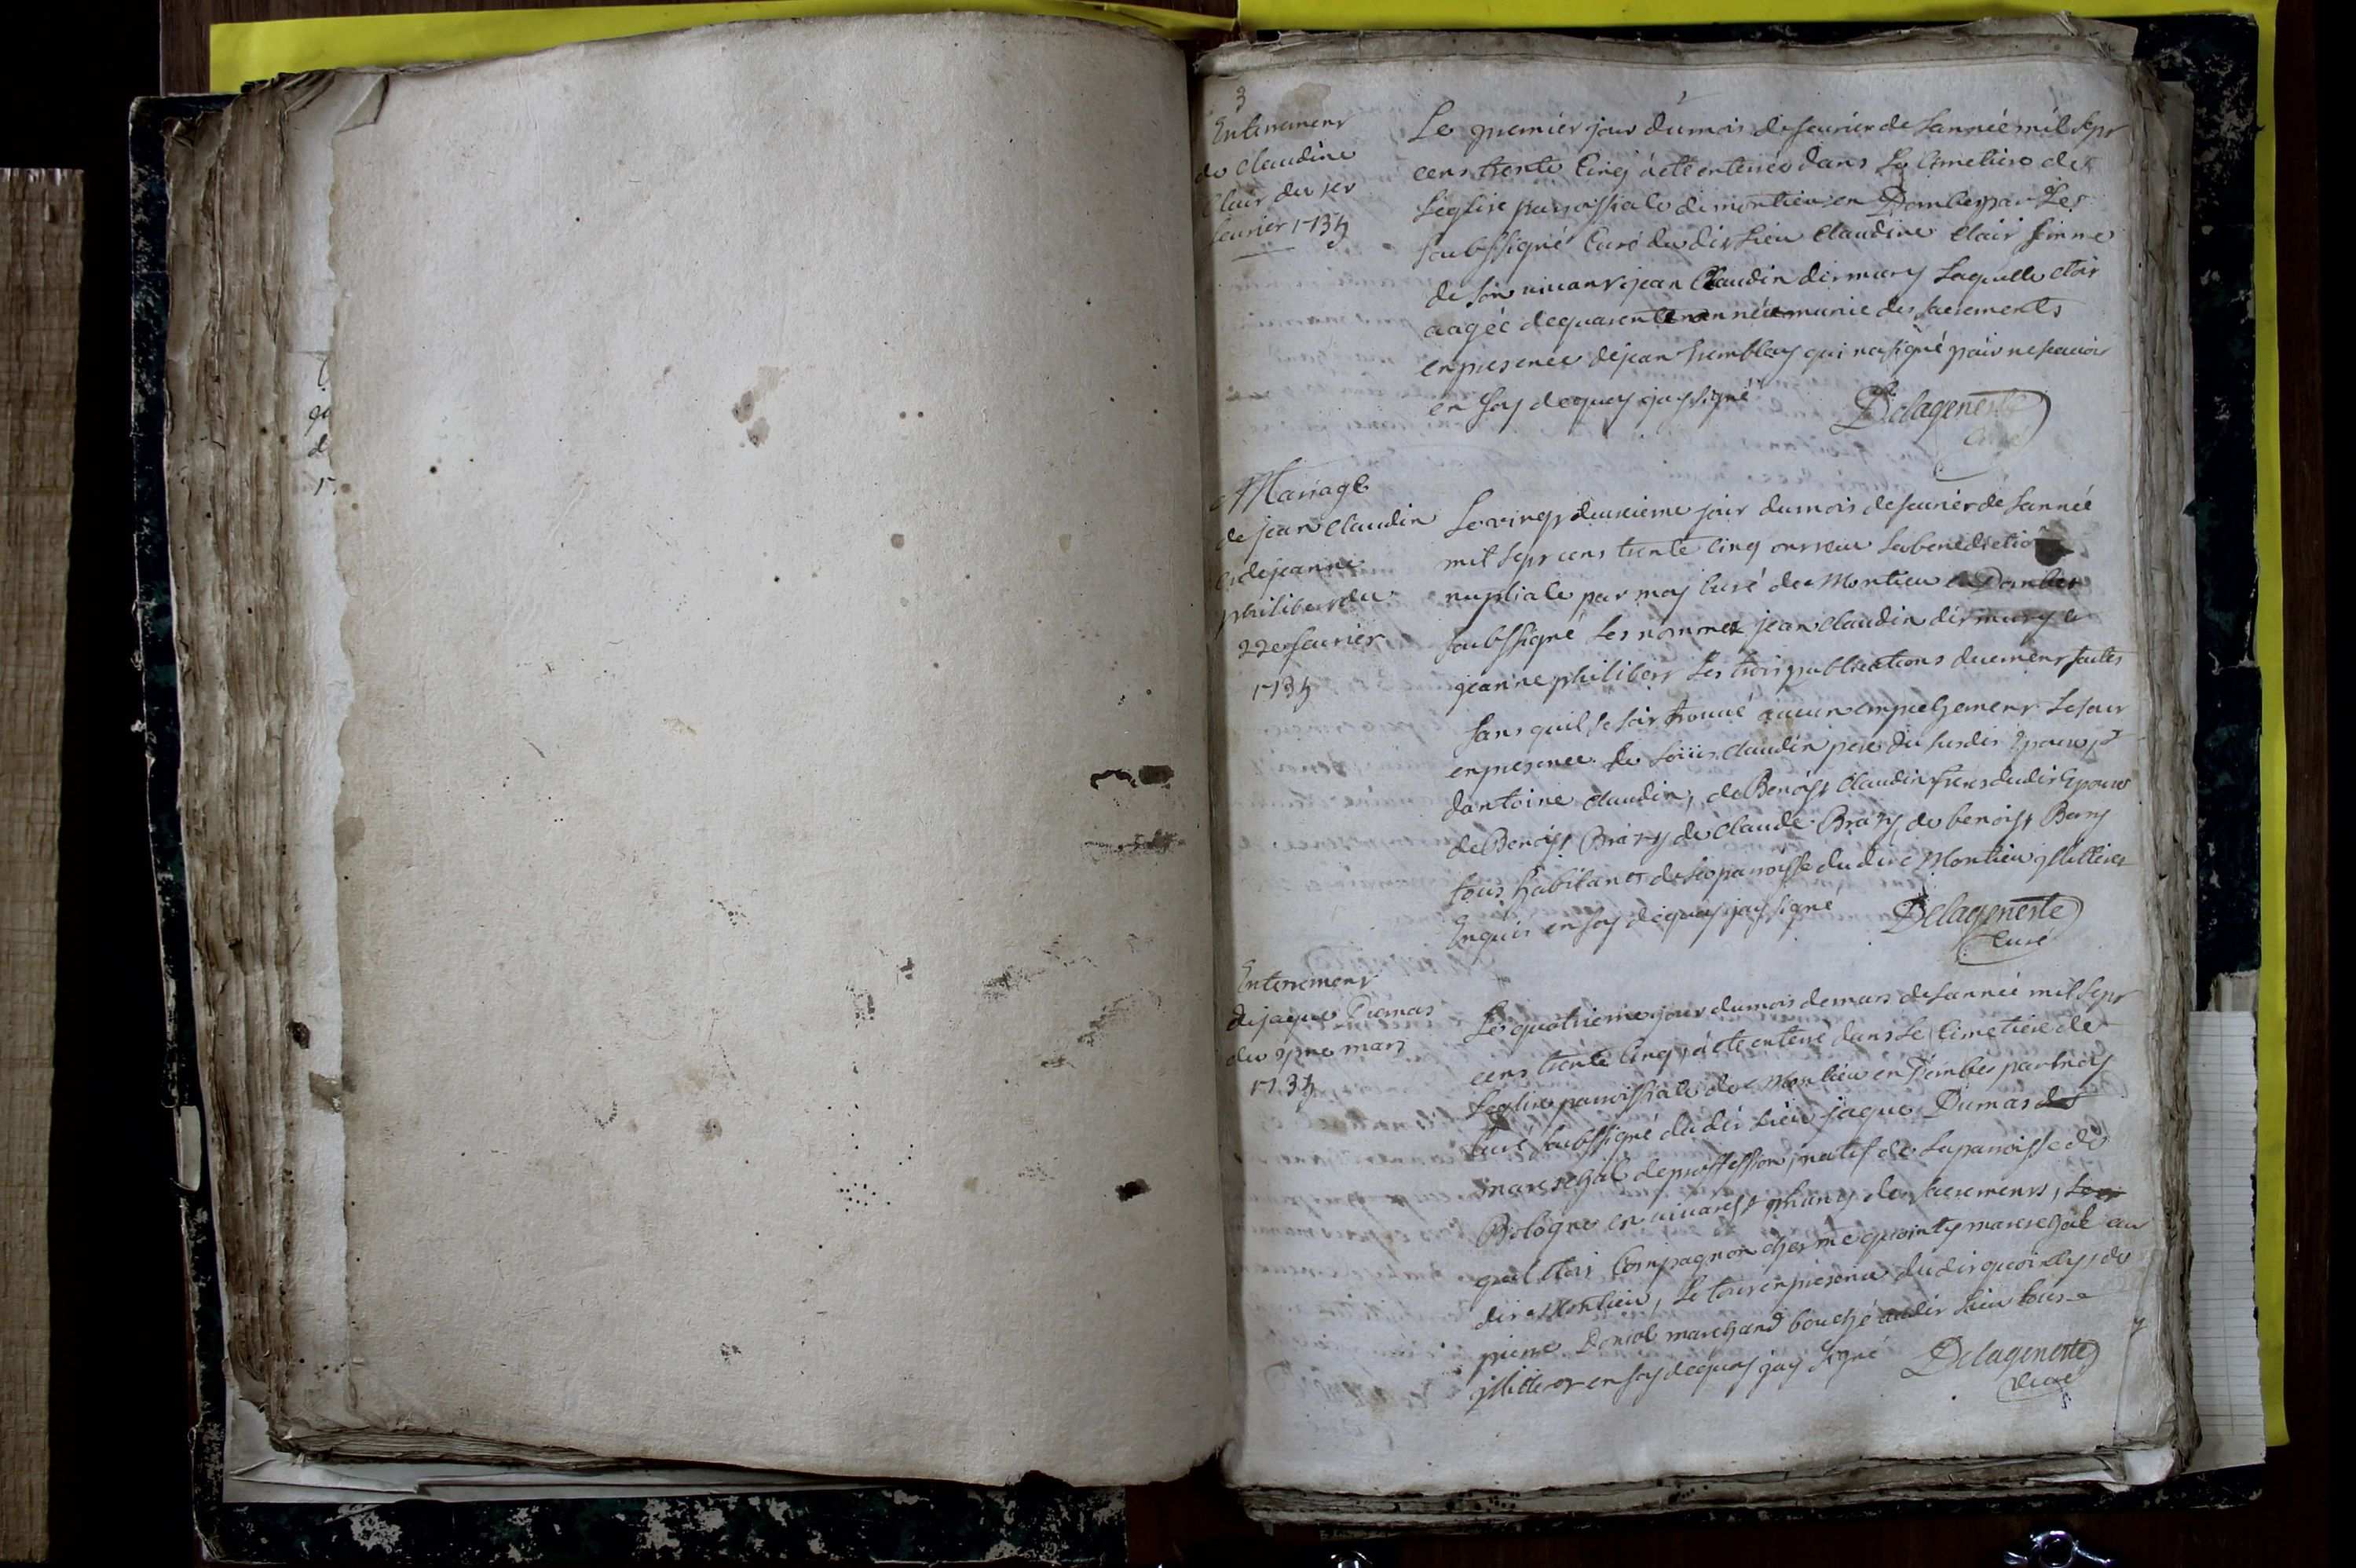 3
Enterrement
de Claudine
Clair du 1er
feurier 1735
Le premier jour du mois de feurier de l'année mil sept
cens trente cinq a eté enterrée dans le cimetiere de
l'eglise parroissiale de montieu en Dombes par le
soubssigné curé du dit lieu Claudine Clair femme
de son uiuant jean Claudin dit mury laquelle etoit
aagée de quarente année munie des sacrements
en presence de jean tremblay qui na signé pour ne scauoir
en foy de quoy jay signé
Delageneste
curé
Mariage
de jean Claudin
et de jeanne
philibert du
22e feurier
1735
Le vingt deuxieme jour du mois de feurier de l'année
mil sept cens trente cinq ont receu la benediction
nuptiale par moy curé de Montieu en Dombes
soubssigné les nommez jean Claudin dit mury et
jeanne philibert les trois publications duement faites
sans quil se soit trouué aucun empeschement le tout
en presence de Loüis Claudin pere du susdit Epoux, et
dantoine Claudin, de Benoist Claudin freres dudit Epoux
de Benoist Brazy de Claude Brazy, de benoist Bery
tous habitants de la parroisse dudit Montieu jllitteres
Enquis en foy de quoy jay signé
Delageneste
curé
Enterrement
de jaque Dumas
du 4me mars
1735
Le quatrieme jour du mois de mars de l'année mil sept
cens trente cinq, a eté enterré dans le cimetiere de
l'eglise parroissiale de Montieu en Dombes par moy
curé soubssigné du dit lieu jaque Dumas
mareschal de proffession, natif de la parroisse de
Bologne en uiuarest muny des sacrements,
quil etoit compagnon ches me quointy mareschal au
dit Montieu, le tout en presence dudit quointy, de
pierre Doniol marchand bouché audit lieu tous
jlliteres en foy de quoy jay signé
Delageneste
curé